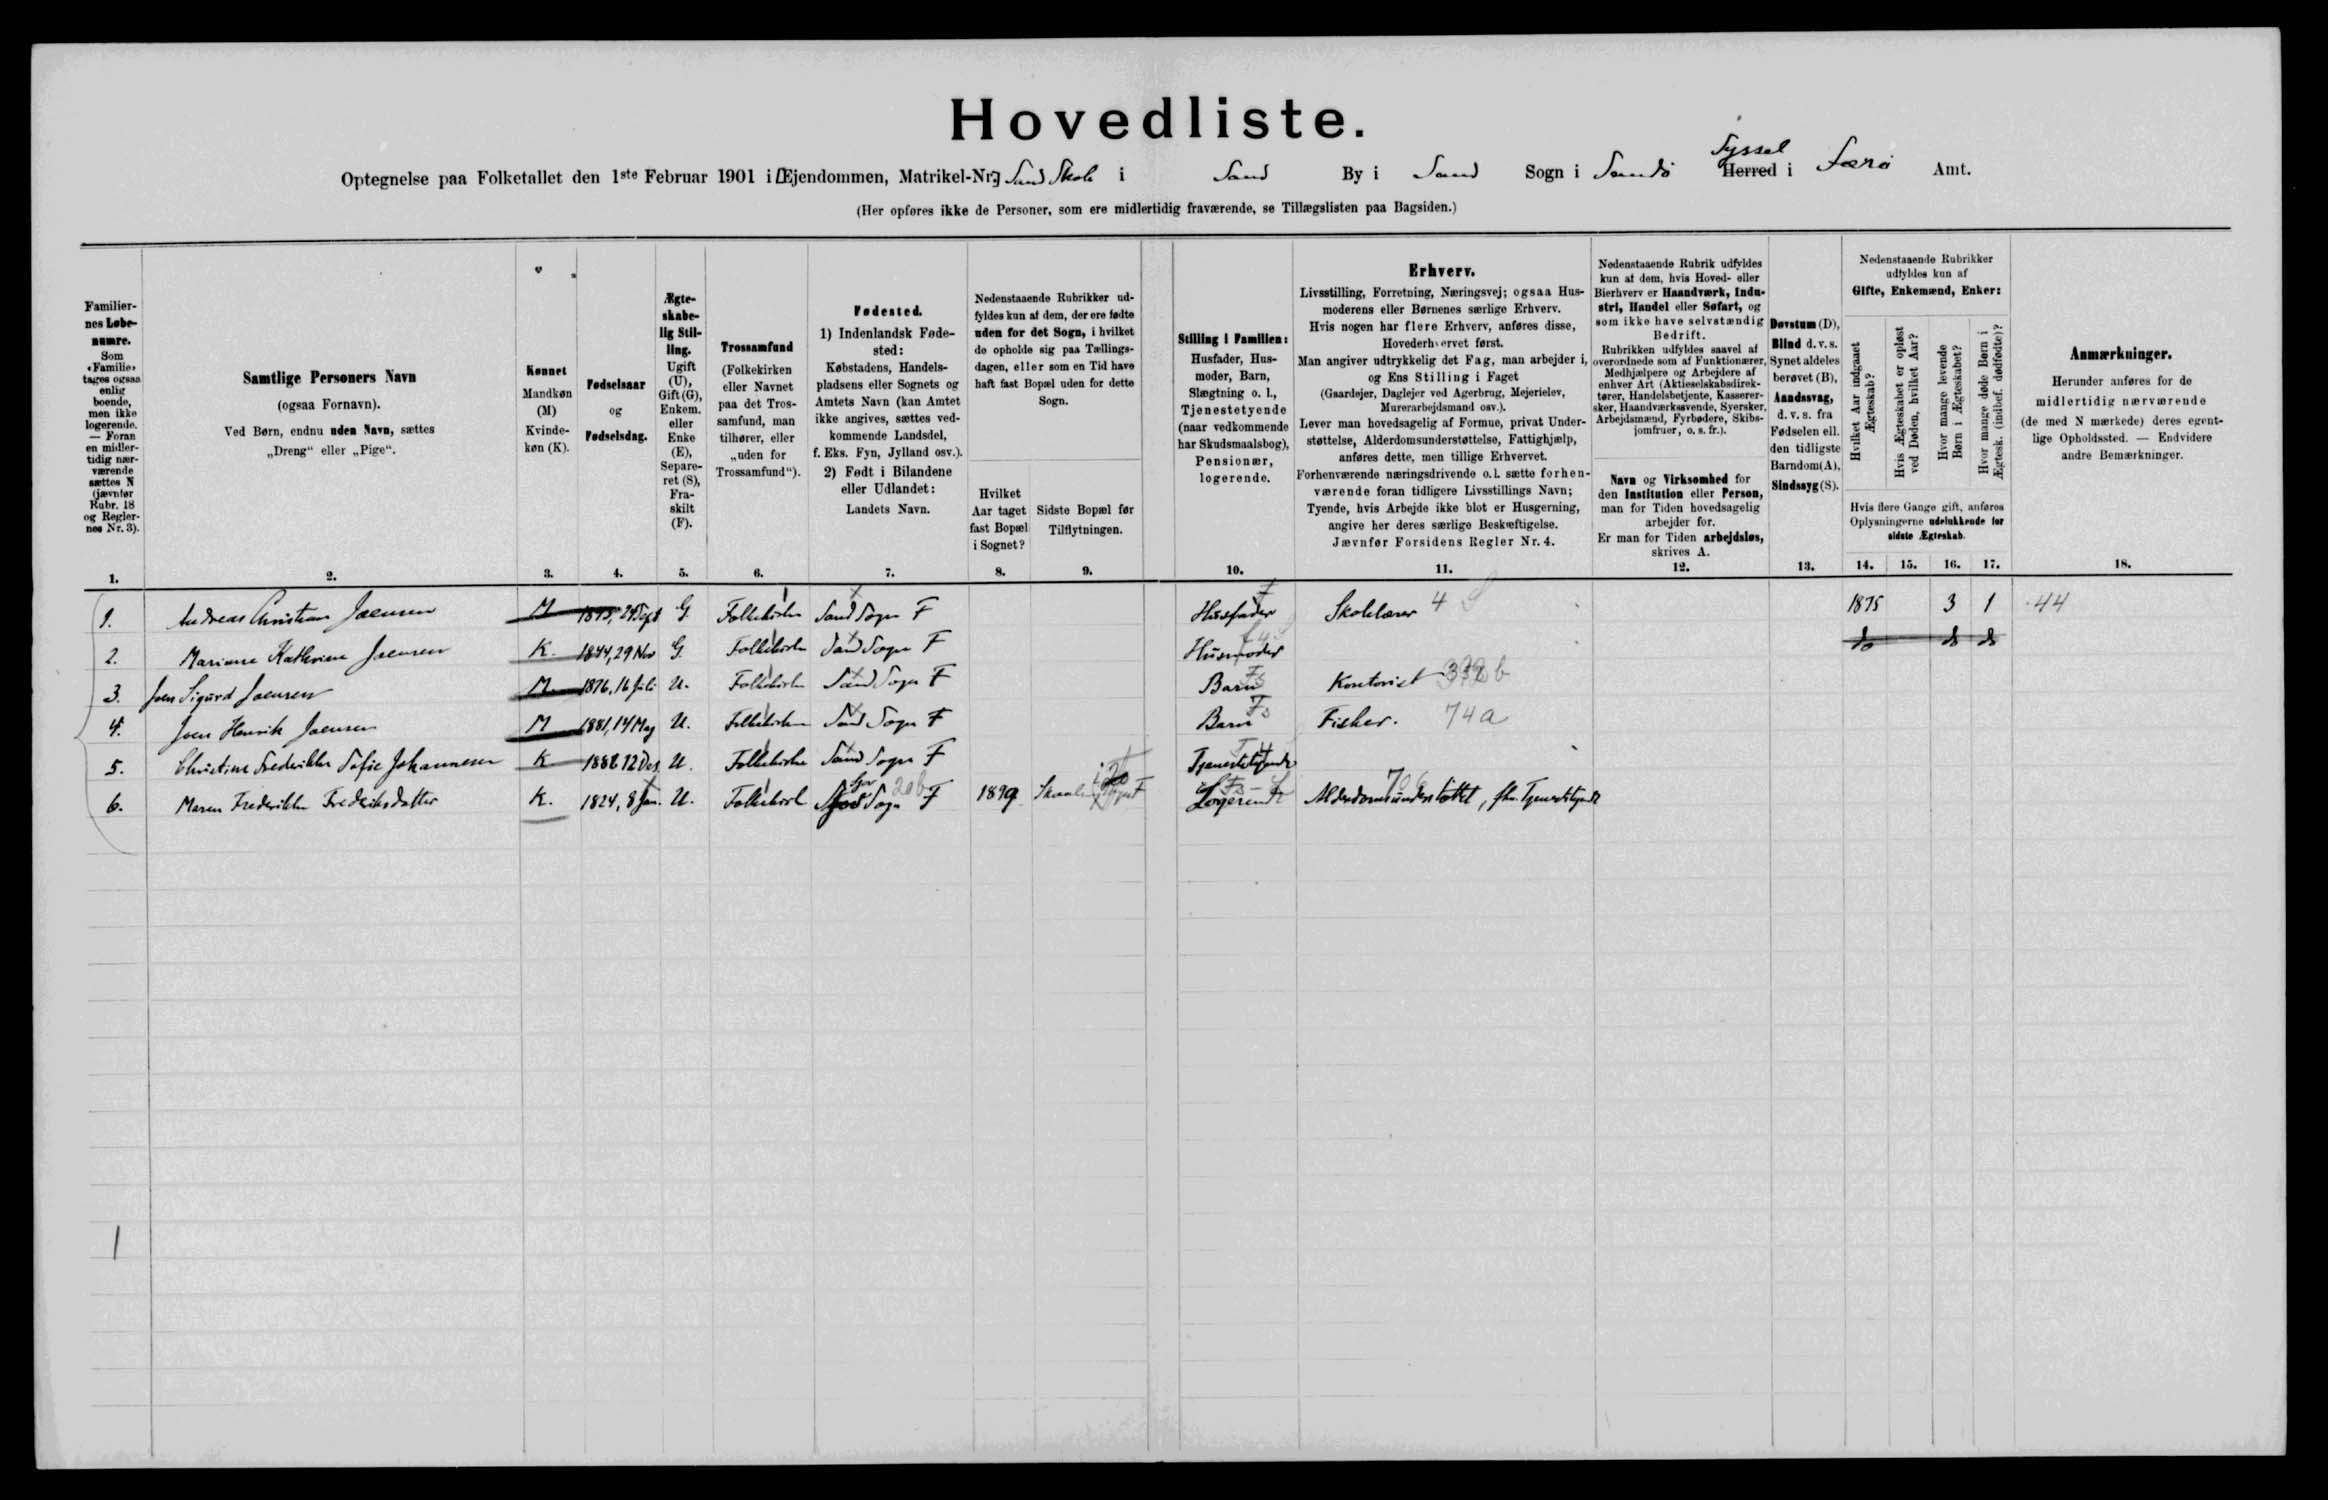 Hovedliste.
Optegnelse paa Folketallet den 1ste Februar 1901 i [Ejendommen, Matrikel-Nr.] Sand Skole i Sand By i Sand Sogn i Sandø Syssel Herred i Færø Amt.
(Her opføres ikke de Personer, som ere midlertidig fraværende, se Tillægslisten paa Bagsiden.)
Familiernes Løbenumre.
Som «Familie» tages ogsaa enlig boende, men ikke logerende. — Foran en midlertidig nærværende sættes N (jævnfør Rubr. 18 og Reglernes Nr. 3).
1.
Samtlige Personers Navn
(ogsaa Fornavn).
Ved Børn, endnu uden Navn, sættes
„Dreng“ eller „Pige“.
2.
Kønnet
Mandkøn (M) Kvindekøn (K).
3.
Fødselsaar
og
Fødselsdag.
4.
Ægteskabelig Stilling.
Ugift (U), Gift (G), Enkem. eller Enke (E), Separeret (S), Fraskilt (F).
5.
Trossamfund
(Folkekirken eller Navnet paa det Trossamfund, man tilhører, eller „uden for Trossamfund“).
6.
Fødested.
1) Indenlandsk Fødested:
Købstadens, Handelspladsens eller Sognets og Amtets Navn (kan Amtet ikke angives, sættes vedkommende Landsdel, f. Eks. Fyn, Jylland osv.).
2) Født i Bilandene eller Udlandet:
Landets Navn.
7.
Nedenstaaende Rubrikker udfyldes kun af dem, der ere fødte uden for det Sogn, i hvilket de opholde sig paa Tællingsdagen, eller som en Tid have haft fast Bopæl uden for dette Sogn.
Hvilket Aar taget fast Bopæl i Sognet?
8.
Sidste Bopæl før Tilflytningen.
9.
Stilling i Familien:
Husfader, Husmoder, Barn, Slægtning o. l., Tjenestetyende (naar vedkommende har Skudsmaalsbog), Pensionær, logerende.
10.
Erhverv.
Livsstilling, Forretning, Næringsvej; ogsaa Husmoderens eller Børnenes særlige Erhverv.
Hvis nogen har flere Erhverv, anføres disse, Hovederhvervet først.
Man angiver udtrykkelig det Fag, man arbejder i, og Ens Stilling i Faget
(Gaardejer, Daglejer ved Agerbrug, Mejerielev, Murerarbejdsmand osv.).
Lever man hovedsagelig af Formue, privat Understøttelse, Alderdomsunderstøttelse, Fattighjælp, anføres dette, men tillige Erhvervet.
Forhenværende næringsdrivende o. l. sætte forhenværende foran tidligere Livsstillings Navn;
Tyende, hvis Arbejde ikke blot er Husgerning, angive her deres særlige Beskæftigelse.
Jævnfør Forsidens Regler Nr. 4.
11.
Nedenstaaende Rubrik udfyldes kun af dem, hvis Hoved- eller Bierhverv er Haandværk, Industri, Handel eller Søfart, og som ikke have selvstændig Bedrift.
Rubrikken udfyldes saavel af overordnede som af Funktionærer, Medhjælpere og Arbejdere af enhver Art (Aktieselskabsdirektører, Handelsbetjente, Kasserersker, Haandværkssvende, Syersker, Arbejdsmænd, Fyrbødere, Skibsjomfruer, o. s. fr.).
Navn og Virksomhed for den Institution eller Person, man for Tiden hovedsagelig arbejder for.
Er man for Tiden arbejdsløs, skrives A.
12.
Døvstum (D), Blind d. v. s. Synet aldeles berøvet (B), Aandssvag, d. v. s. fra Fødselen ell. den tidligste Barndom (A), Sindssyg (S).
13.
Nedenstaaende Rubrikker udfyldes kun af
Gifte, Enkemænd, Enker:
Hvilket Aar indgaaet Ægteskab?
Hvis Ægteskabet er opløst ved Døden, hvilket Aar?
Hvor mange levende Børn i Ægteskabet?
Hvor mange døde Børn i Ægtesk. (indbef. dødfødte)?
Hvis flere Gange gift, anføres Oplysningerne udelukkende for sidste Ægteskab.
14. 15. 16. 17.
Anmærkninger.
Herunder anføres for de midlertidig nærværende (de med N mærkede) deres egentlige Opholdssted. — Endvidere andre Bemærkninger.
18.
1. Andreas Christian Joensen M G. Folkekirken Sand Sogn F Husfader F Skolelærer 4 1875 3 1 44
2. Mariane Kathrine Joensen K. 1844, 29 Nov G. Folkekirken Sand Sogn F Husmoder do do do
3. Joen Sigurd Joensen M. 1876, 16 Juli U. Folkekirken Sand Sogn F Barn Fs Kontorist b
4. Joen Henrik Joensen M 1881, 14 Maj U. Folkekirken Sand Sogn F Barn Fs Fisker. 74a
5. Christine Frederikke Sofie Johannesen K 1882 12 Des U. Folkekirken Sand Sogn F Tjenestetyende
6. Maren Frederikke Frederiksdatter K. 1824, 8 Jan. U. Folkekirk Sogn 20b F 1899 F Logerende Alderdomsunderstøttet, fhv. Tjenestetyende
1